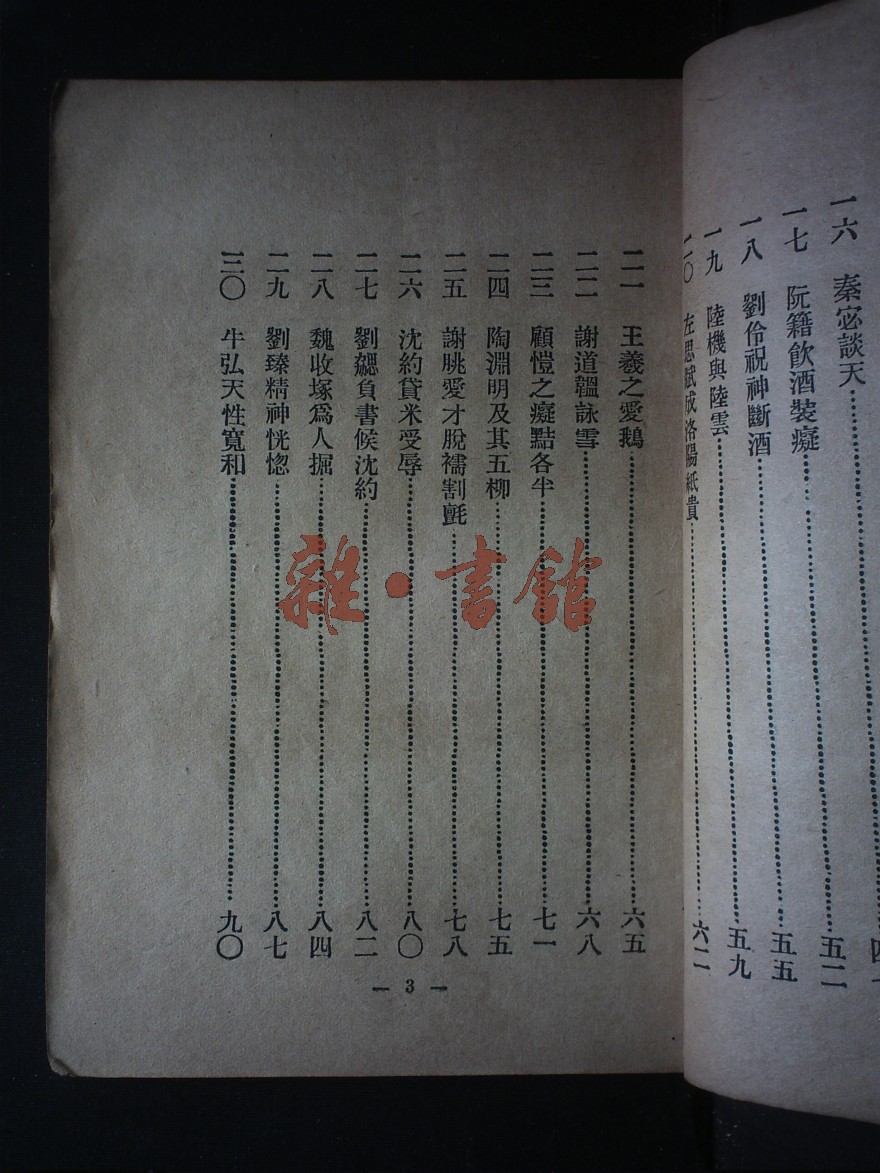 一六 秦宓談天
一七 阮籍飲酒裝癡 五二
一八 劉伶祝神斷酒 五五
一九 陸機與陸雲 五九
二〇 左思賦成洛陽紙貴 六二
二一 王羲之愛鵝 六五
二二 謝道韞詠雪 六八
二三 顧愷之癡黠各半 七一
二四 陶淵明及其五柳 七五
二五 謝朓愛才脫襦割氈 七八
二六 沈約貸米受辱 八〇
二七 劉勰負書候沈約 八二
二八 魏收塚爲人掘 八四
二九 劉臻精神恍惚 八七
三〇 牛弘天性寬和 九〇
— 3 —
雜·書館